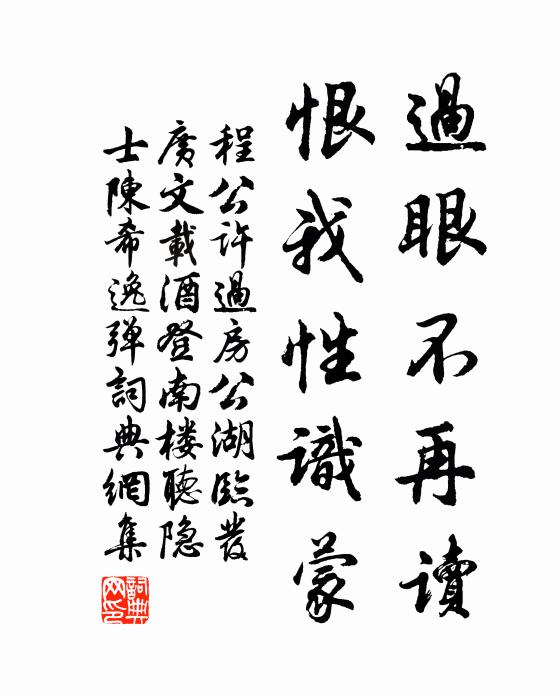 過眼不再讀
恨我性識蒙
程公許過房公湖臨發
廣文載酒登南楼聽隐
士陳希逸弹詞典網集
詞典网印